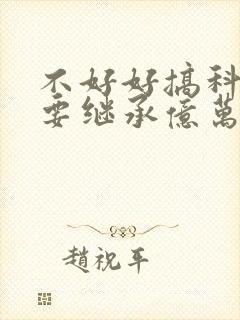 不好好搞科
要继承億萬
趙祝平